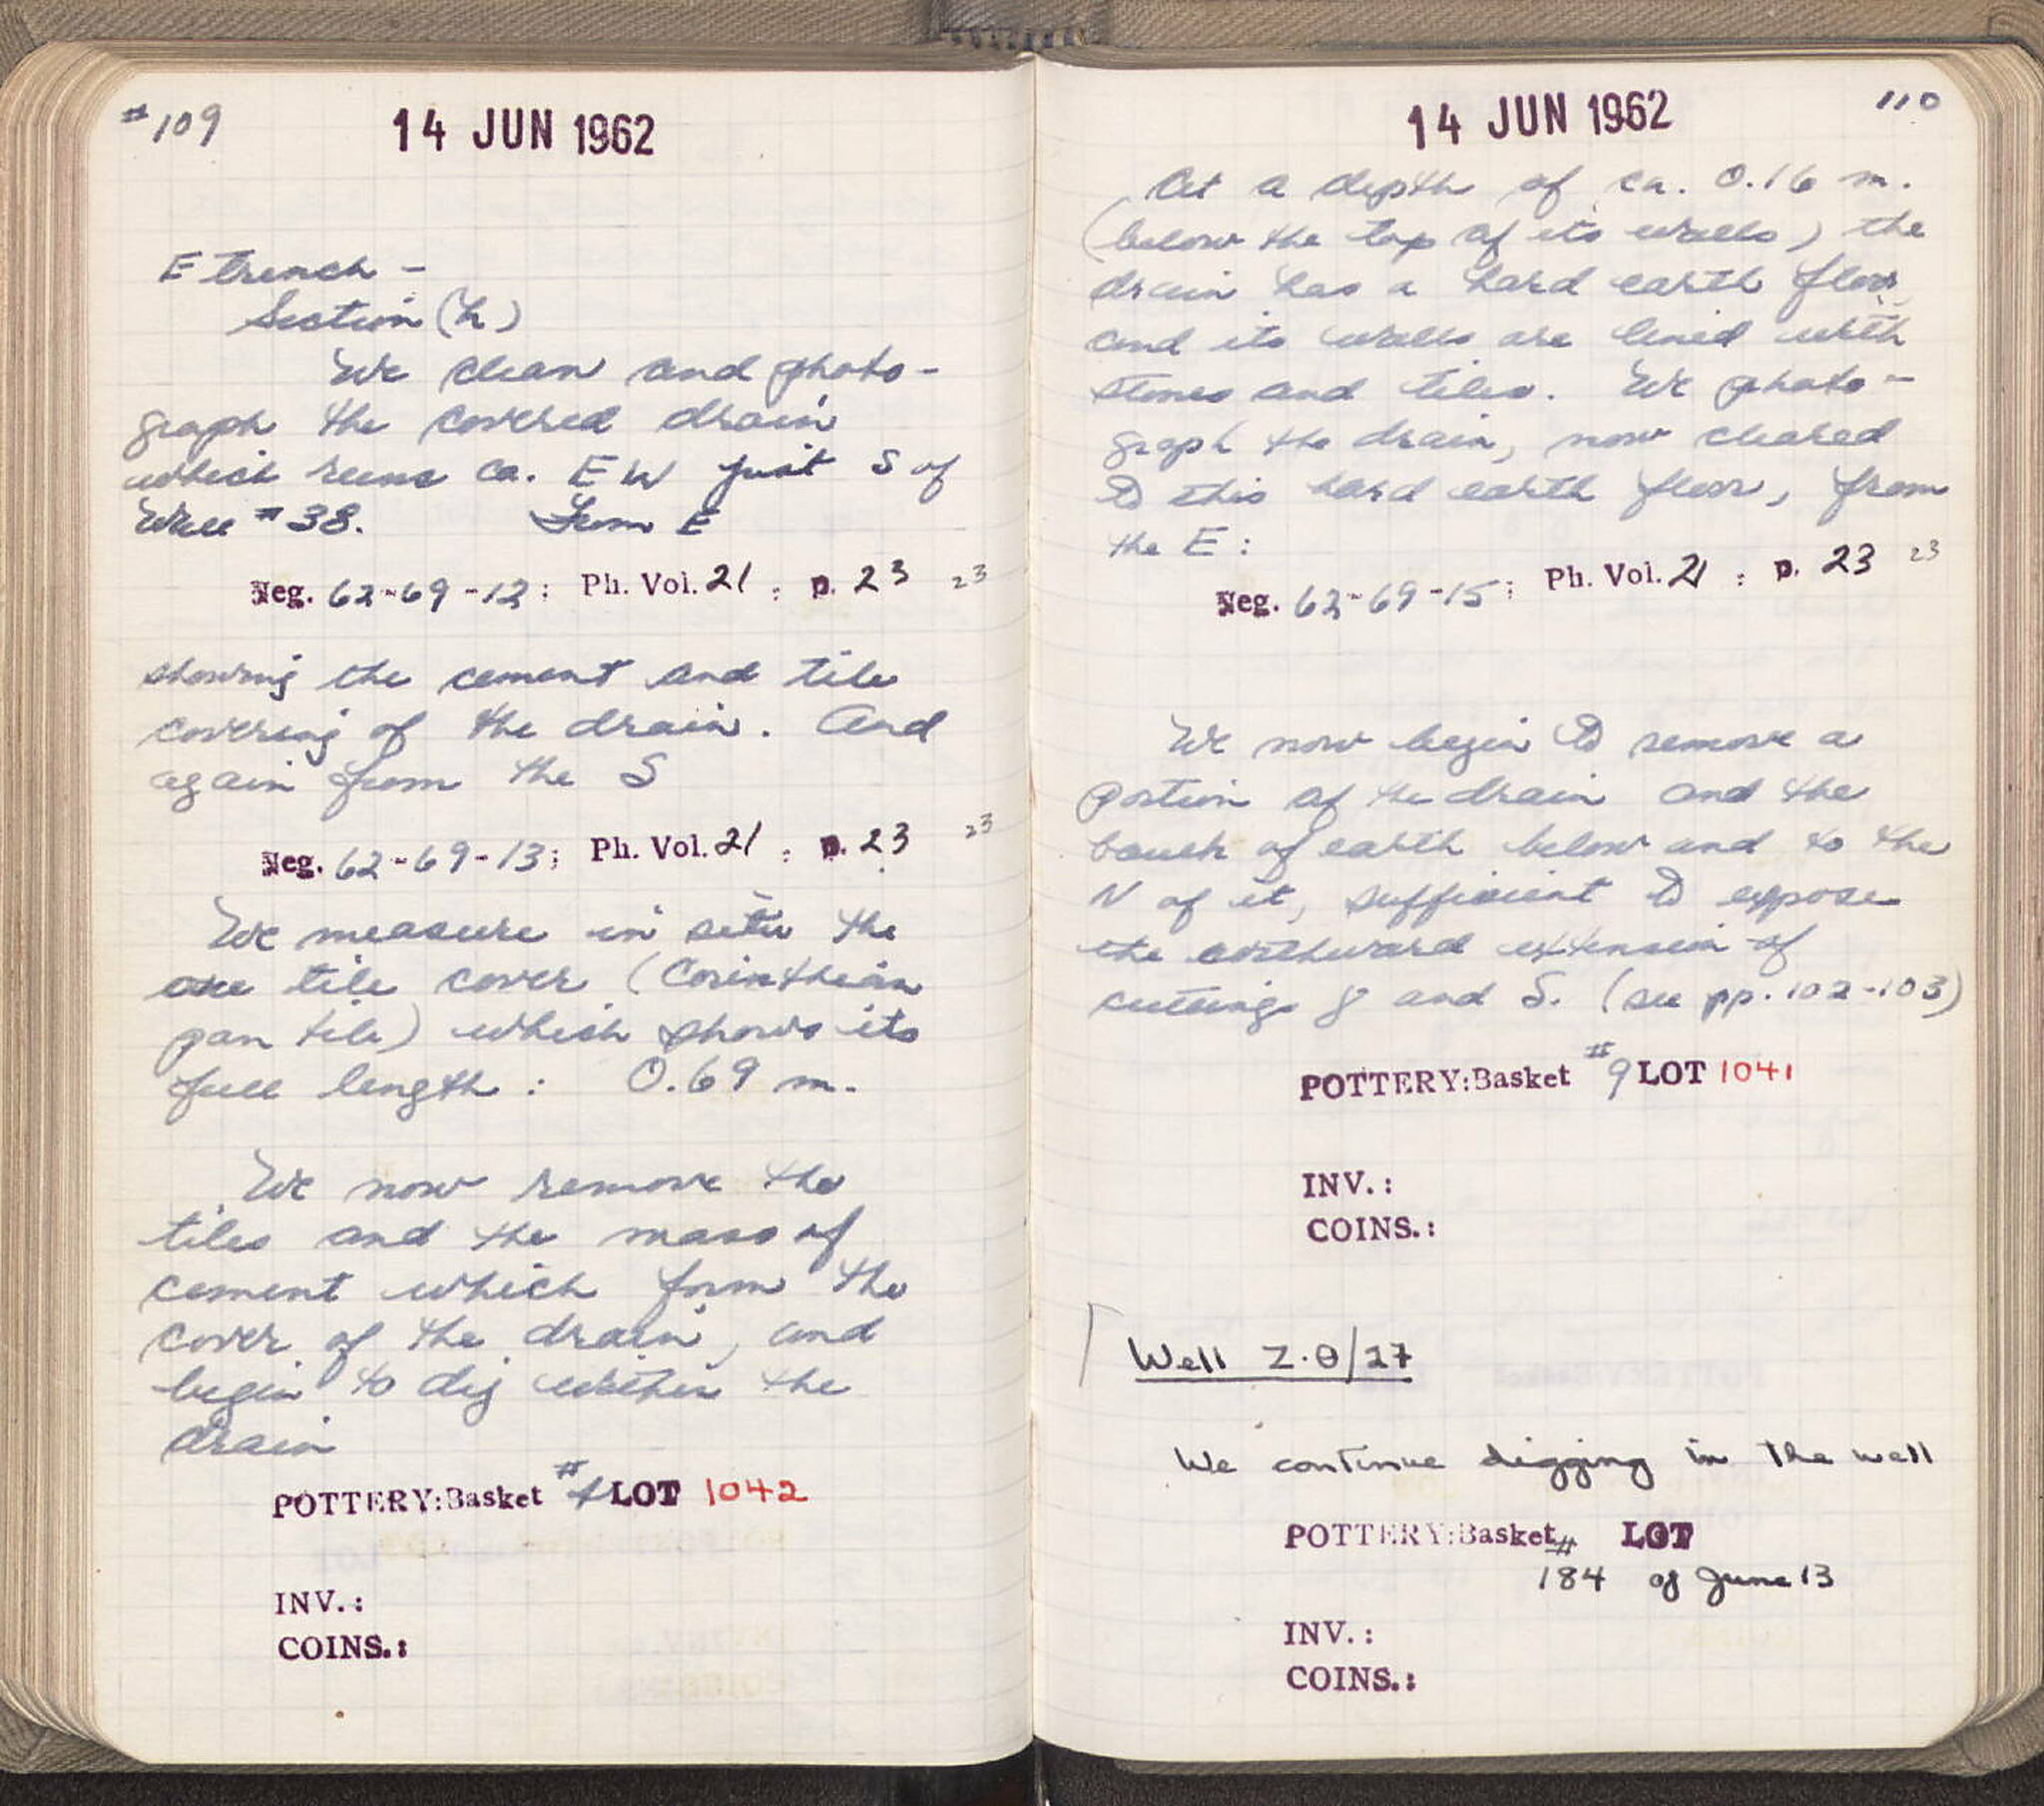 #109
14 JUN 1962
E trench -
Section (h)
We clean and photo-
graph the covered drain
which runs ca. EW just S of
Wall #38. From E
Neg. 62-69-12; Ph. Vol. 21 : p. 23 23
showing the cement and tile
covering of the drain. And
again from the S
Neg. 62-69-13; Ph. Vol. 21 : p. 23 23
We measure in situ the
one tile cover (Corinthian
pan tile) which shows its
full length: 0.69 m.
We now remove the
tiles and the mass of
cement which form the
cover of the drain, and
begin to dig within the
drain
POTTERY: Basket # LOT 1042
INV.:
COINS.:
110
14 JUN 1962
At a depth of ca. 0.16 m.
(below the top of its walls) the
drain has a hard earth floor
and its walls are lined with
stones and tiles. We photo-
graph the drain, now cleared
to this hard earth floor, from
the E:
Neg. 62-69-15; Ph. Vol. 21 : p. 23 23
We now begin to remove a
portion of the drain and the
bauk of earth below and to the
N of it, sufficient to expose
the southward extension of
cuttings γ and δ. (see pp. 102-103)
POTTERY: Basket #9 LOT 1041
INV.:
COINS.:
Well Z·Θ/27
We continue digging in the well
POTTERY: Basket # LOT
184 of June 13
INV.:
COINS.: